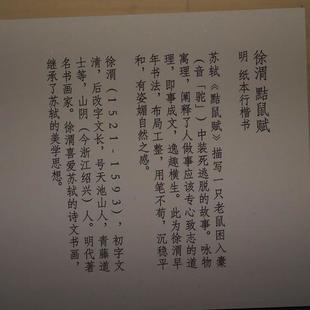 徐渭 點鼠赋
明 纸本行楷书
苏轼《點鼠赋》描写一只老鼠困入橐
（音「驼」）中装死逃脱的故事。咏物
寓理，阐释了人做事应该专心致志的道
理，即事成文，逸趣横生。此为徐渭早
年书法，布局工整，用笔不苟，沉稳平
和，有姿媚自然之感。
徐渭（1521-1593），初字文
清，后改字文长，号天池山人，青藤道
士等，山阴（今浙江绍兴）人。明代著
名书画家。徐渭喜爱苏轼的诗文书画，
继承了苏轼的美学思想。